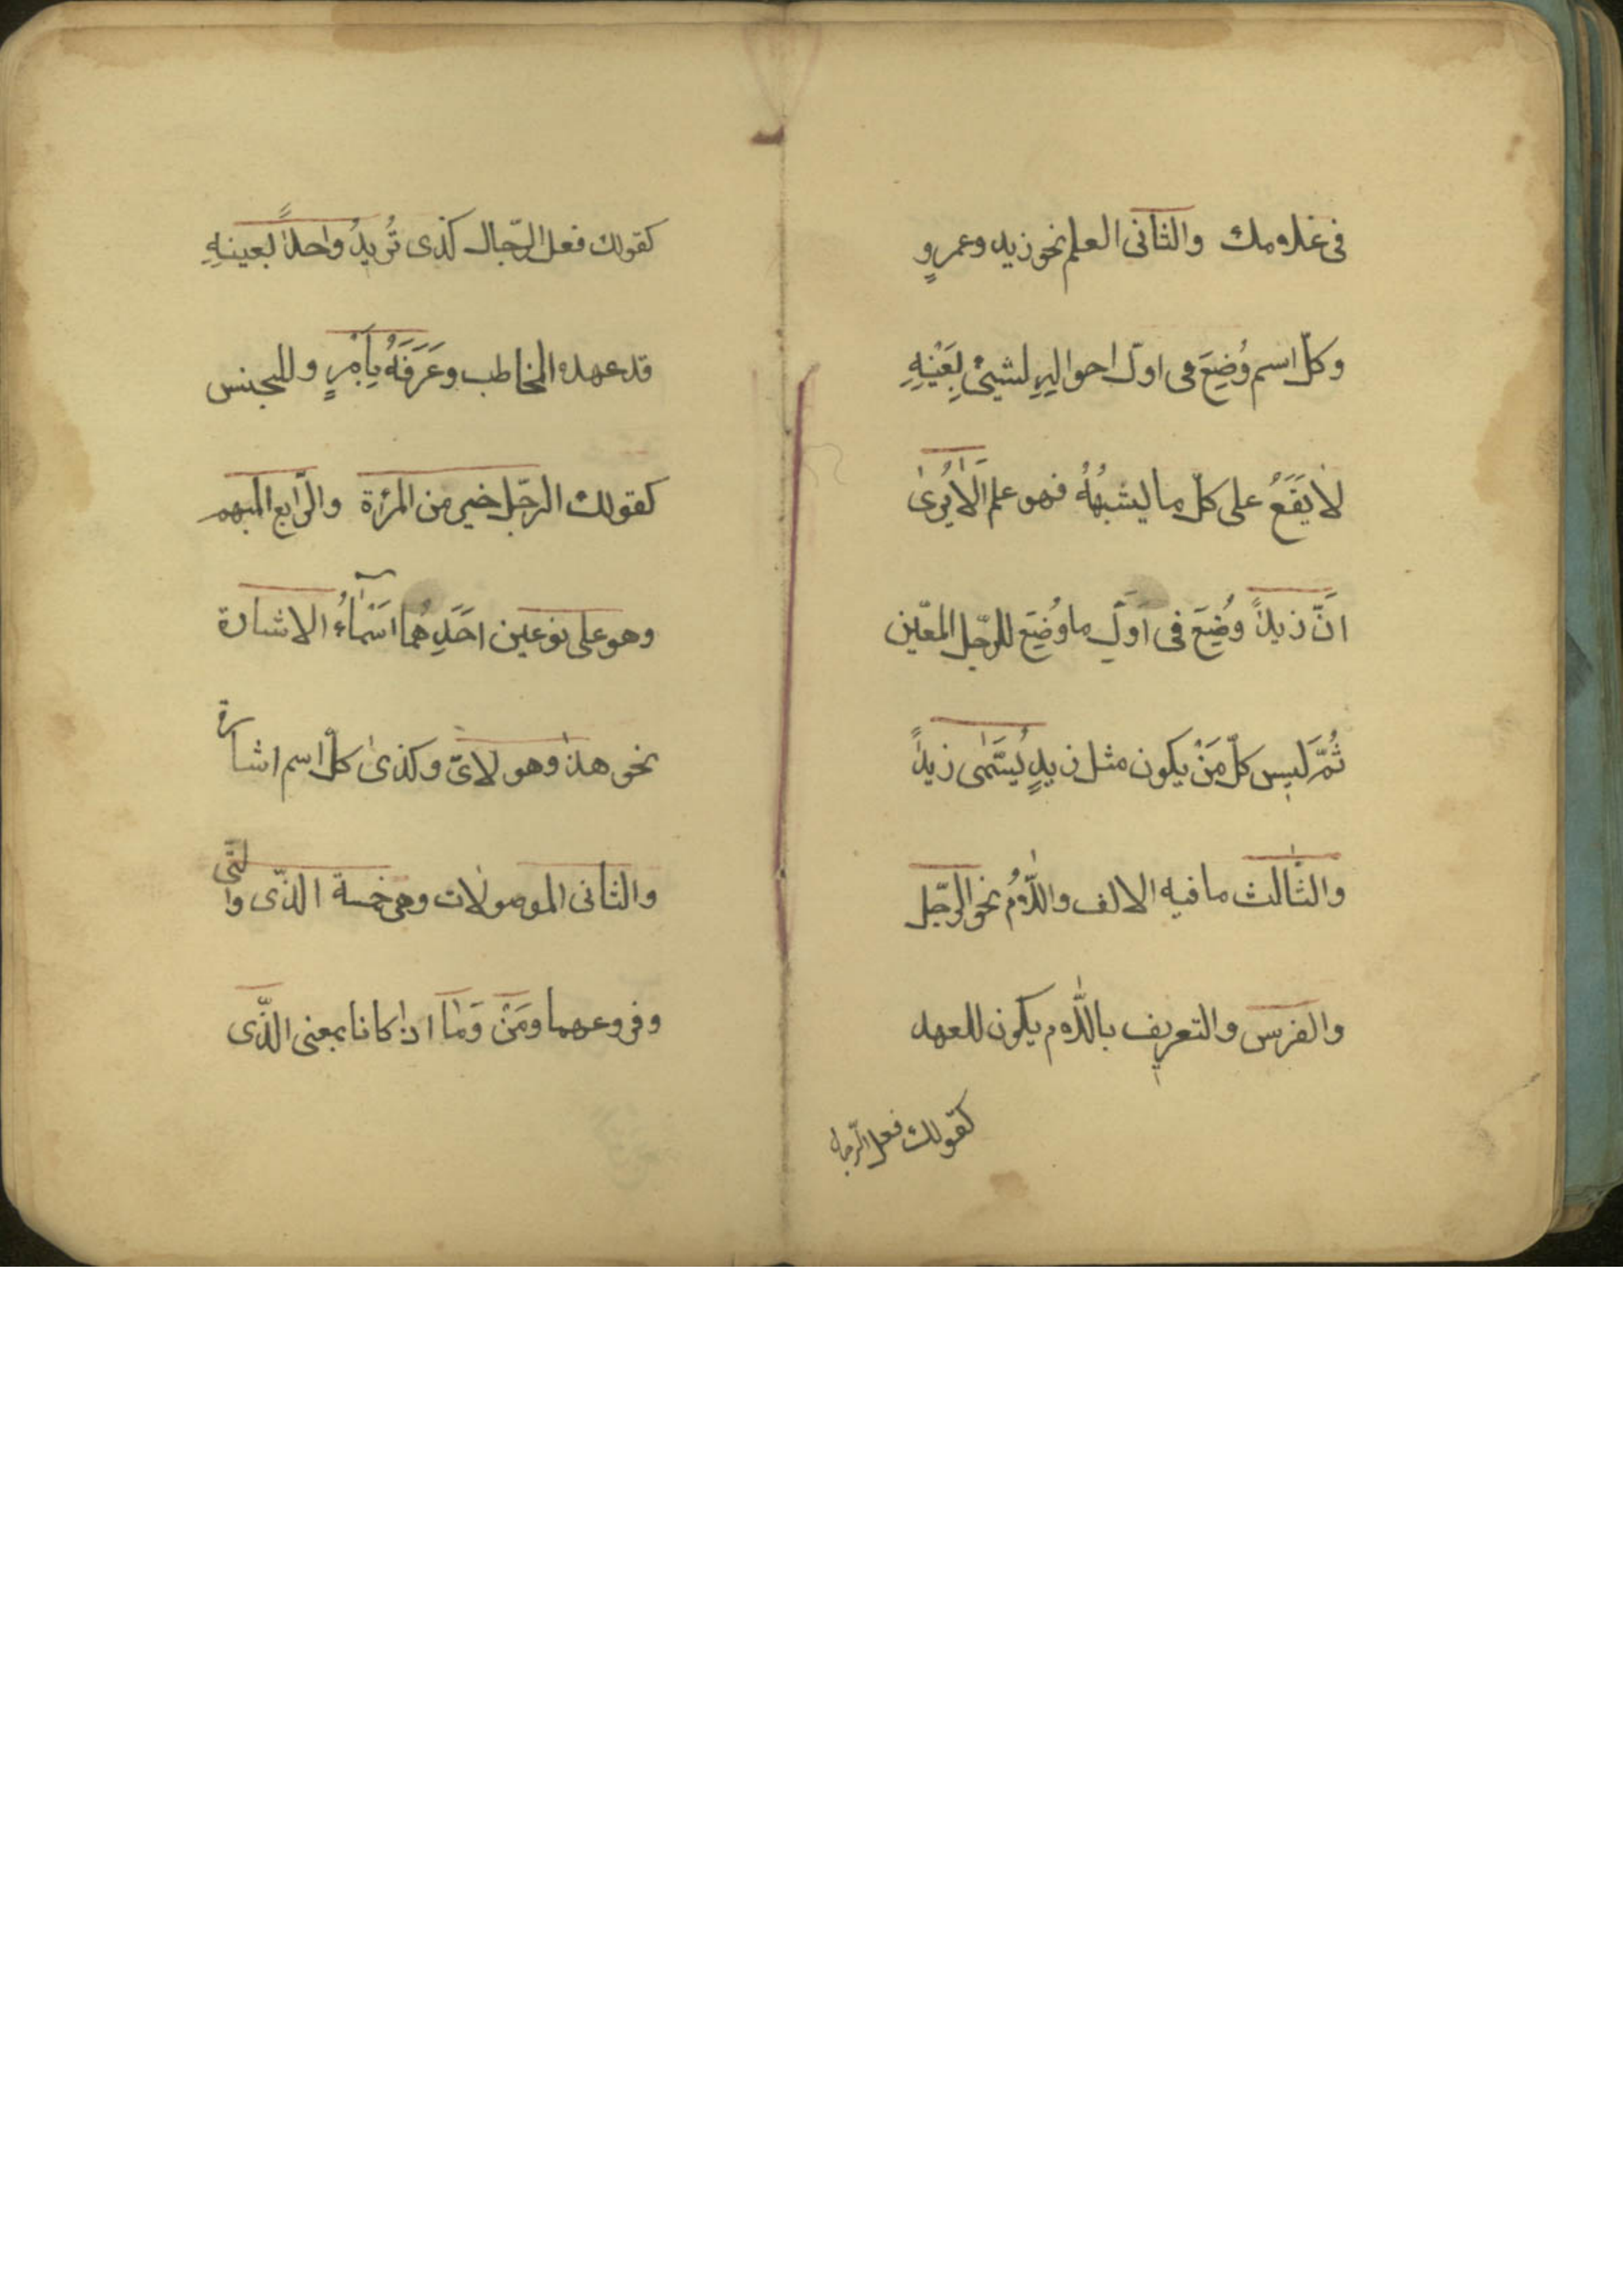 فى غلامك والثانى العلم نحو زيد وعمروٍ
وكلّ اسم وُضِعَ فى اوّل احواله لشيئ بِعَيْنِهِ
لا يَقَعُ على كلّ ما يشبهُهُ فهو علم اَلا يُرىٰ
انَّ زيداً وُضِعَ فى اَوّلِ ما وُضِعَ للرّجل المعّين
ثُمَّ ليس كلّ مَنْ يكون مثل زيدٍ يُسَمّٰى زيداً
والثّالث ما فيه الالف واللّامُ نحو الرّجل
والفرس والتعريف باللّام يكون للعهد
كقولك فعل الرّجال
كقولك فعل الرّجال كذى تُريدُ واحداً بعينهِ
قد عهده المخاطب وعَرَفَهُ بِاَمْرٍ وللجنس
كقولك الرّجل خير من المرئة والرّابع المبهم
وهو على نوعين احَدِهُما اَسْمٰاءُ الاشارة
نحو هذا وهولاىّ وكذىٰ كلّ اسم اشارة
والثانى الموصولات وهى خمسة الذّى والتّى
وفروعهما ومَنْ وَمٰا اذا كانا بمعنى الذّى